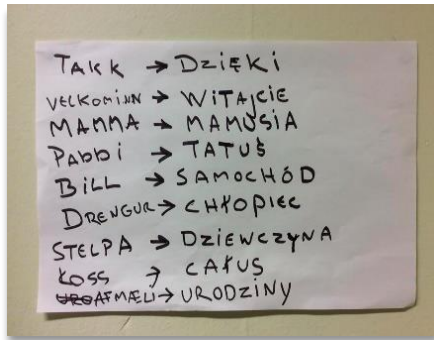 TAKK → DZIĘKI
VELKOMINN → WITAJCIE
MAMMA → MAMUSIA
PABBI → TATUŚ
BILL → SAMOCHÓD
DRENGUR → CHŁOPIEC
STELPA → DZIEWCZYNA
KOSS → CAŁUS
AFMÆLI → URODZINY